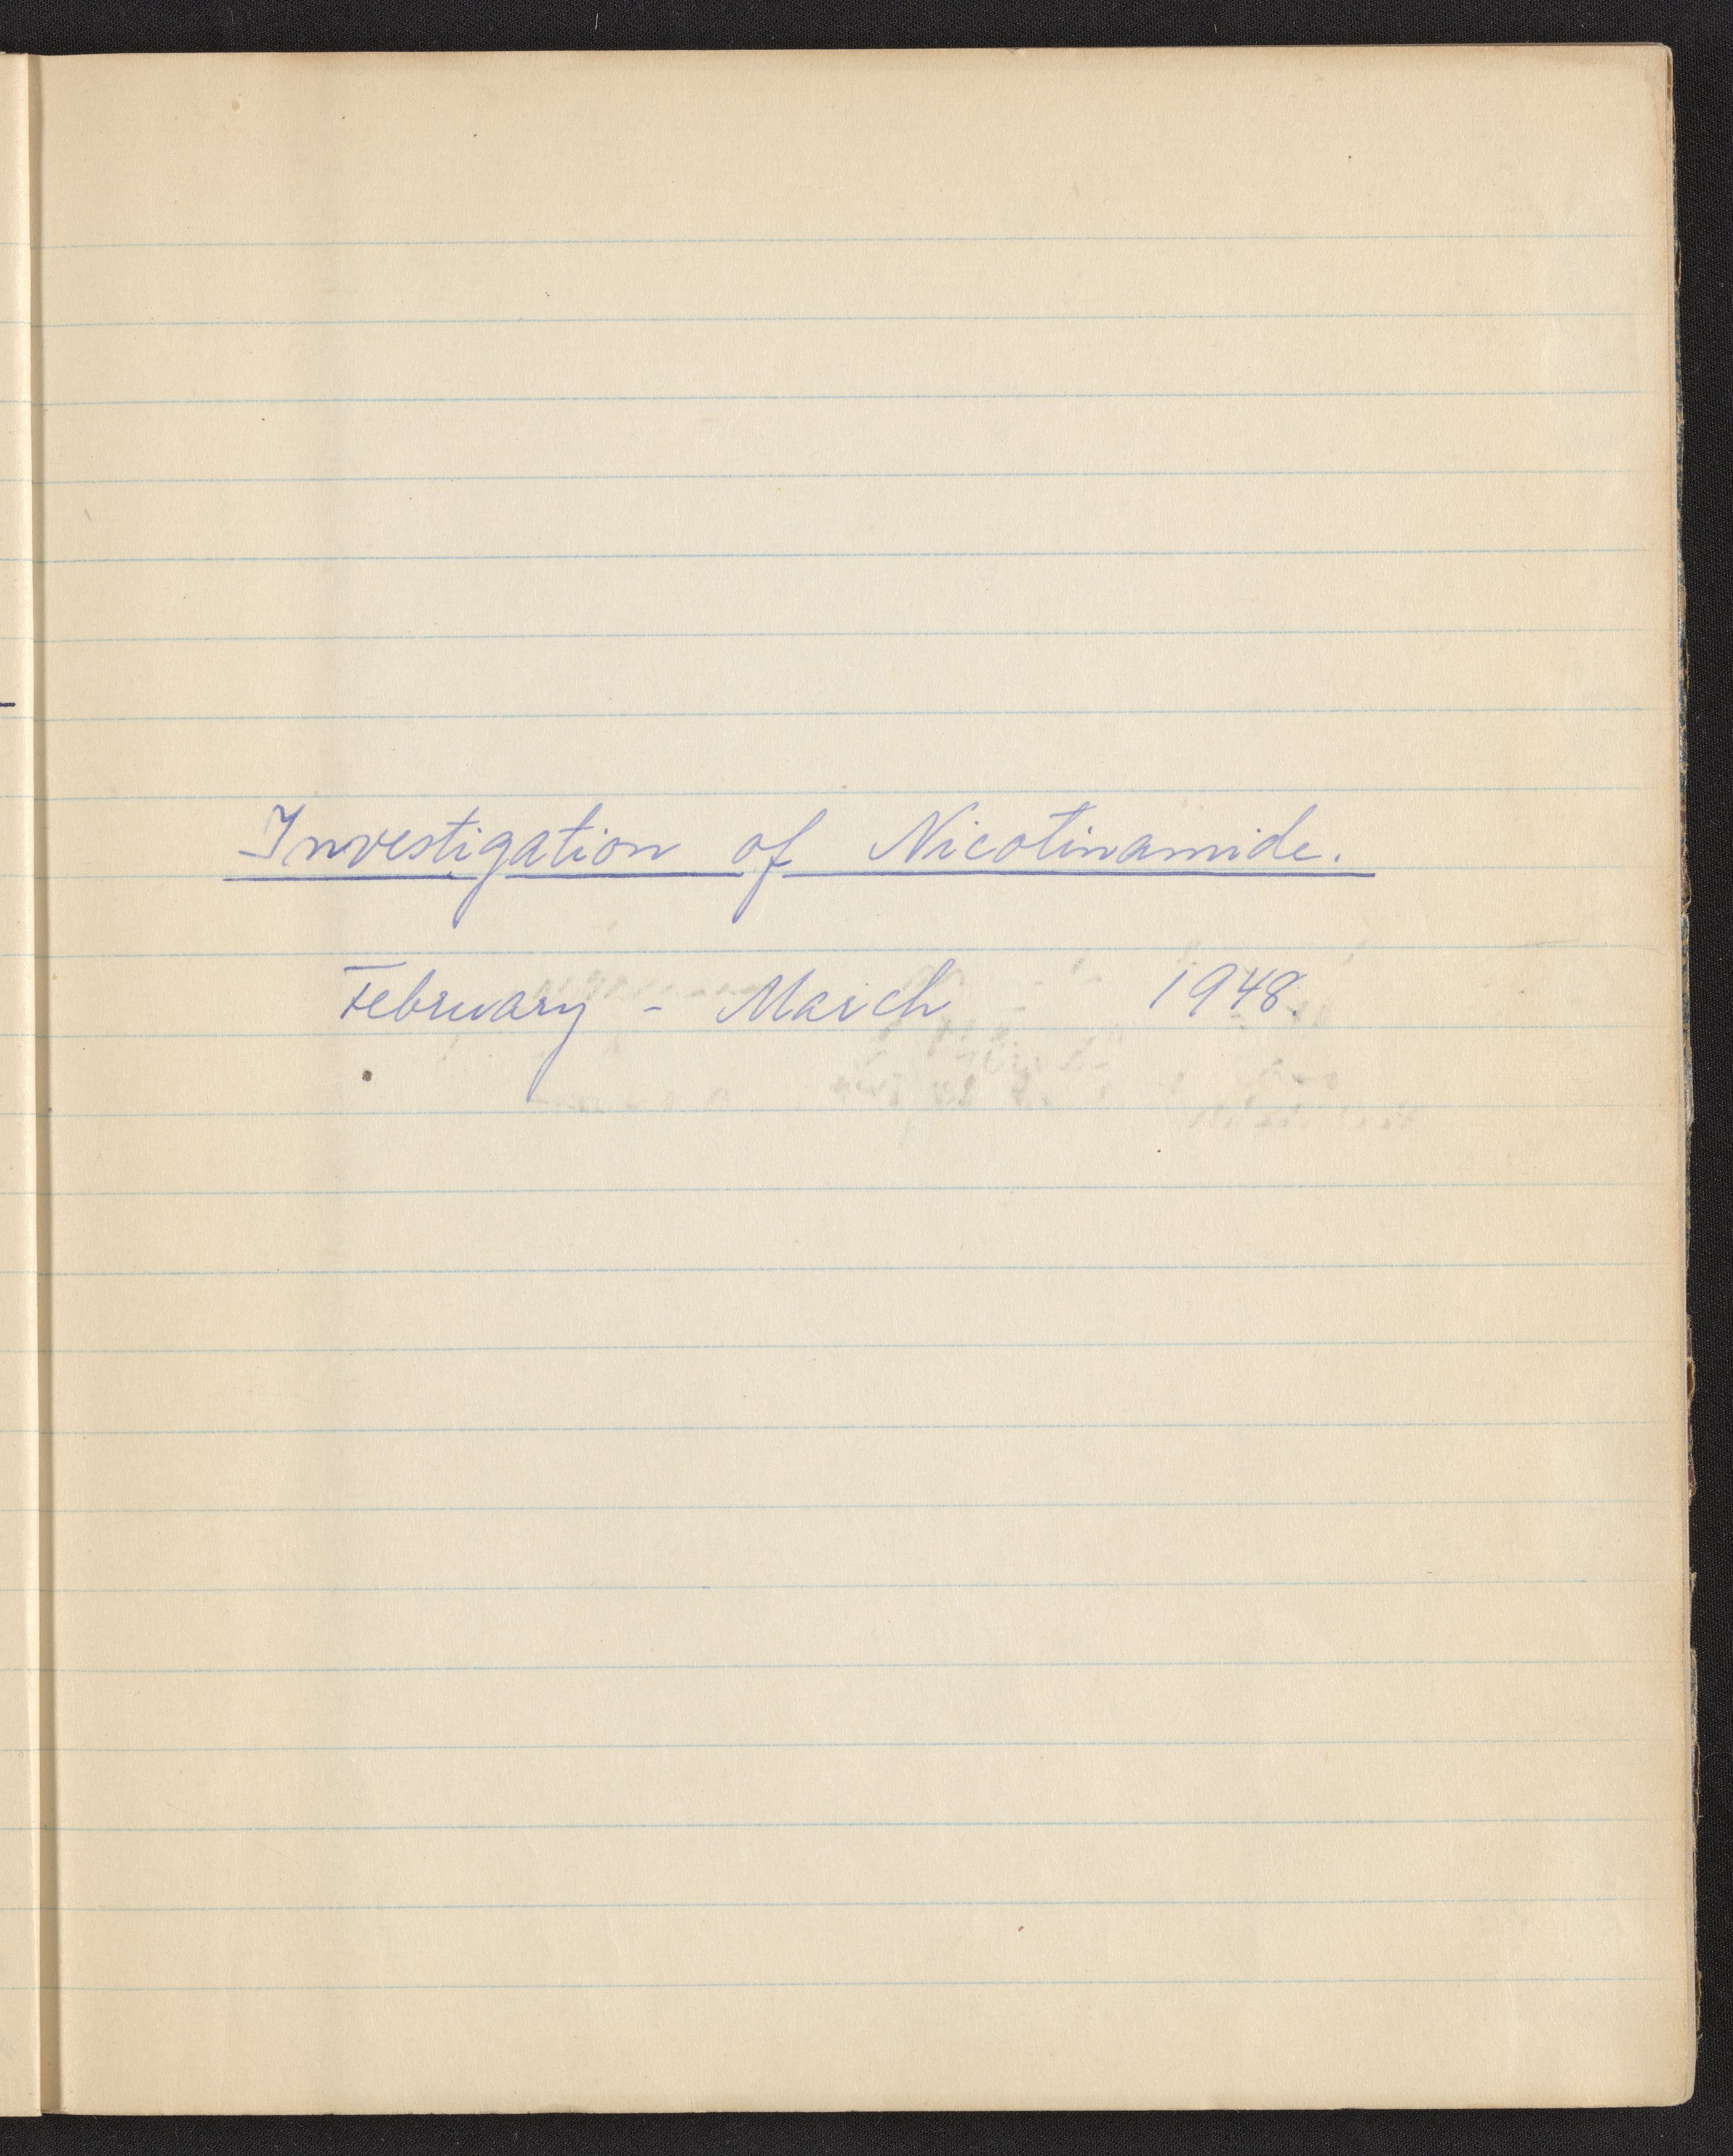 Investigation of Nicotinamide.
February - March 1948.